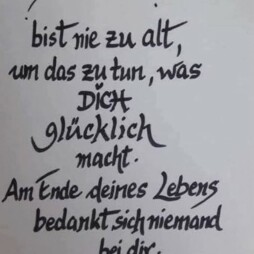 bist nie zu alt,
um das zu tun, was
DICH
glücklich
macht.
Am Ende deines Lebens
bedankt sich niemand
bei dir.